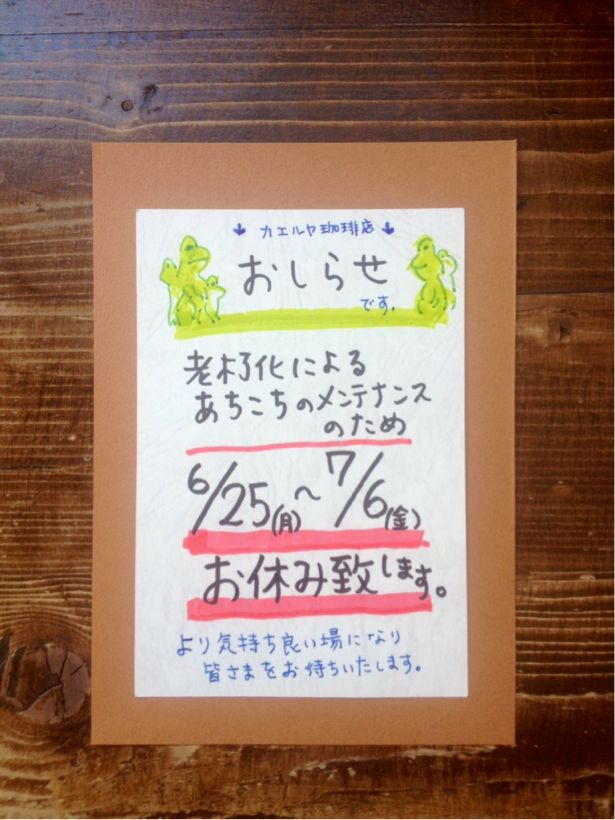 ↓ カエルヤ珈琲店 ↓
おしらせ
です.
老朽化による
あちこちのメンテナンス
のため
6/25(月)~7/6(金)
お休み致します。
より気持ち良い場になり
皆さまをお待ちいたします。